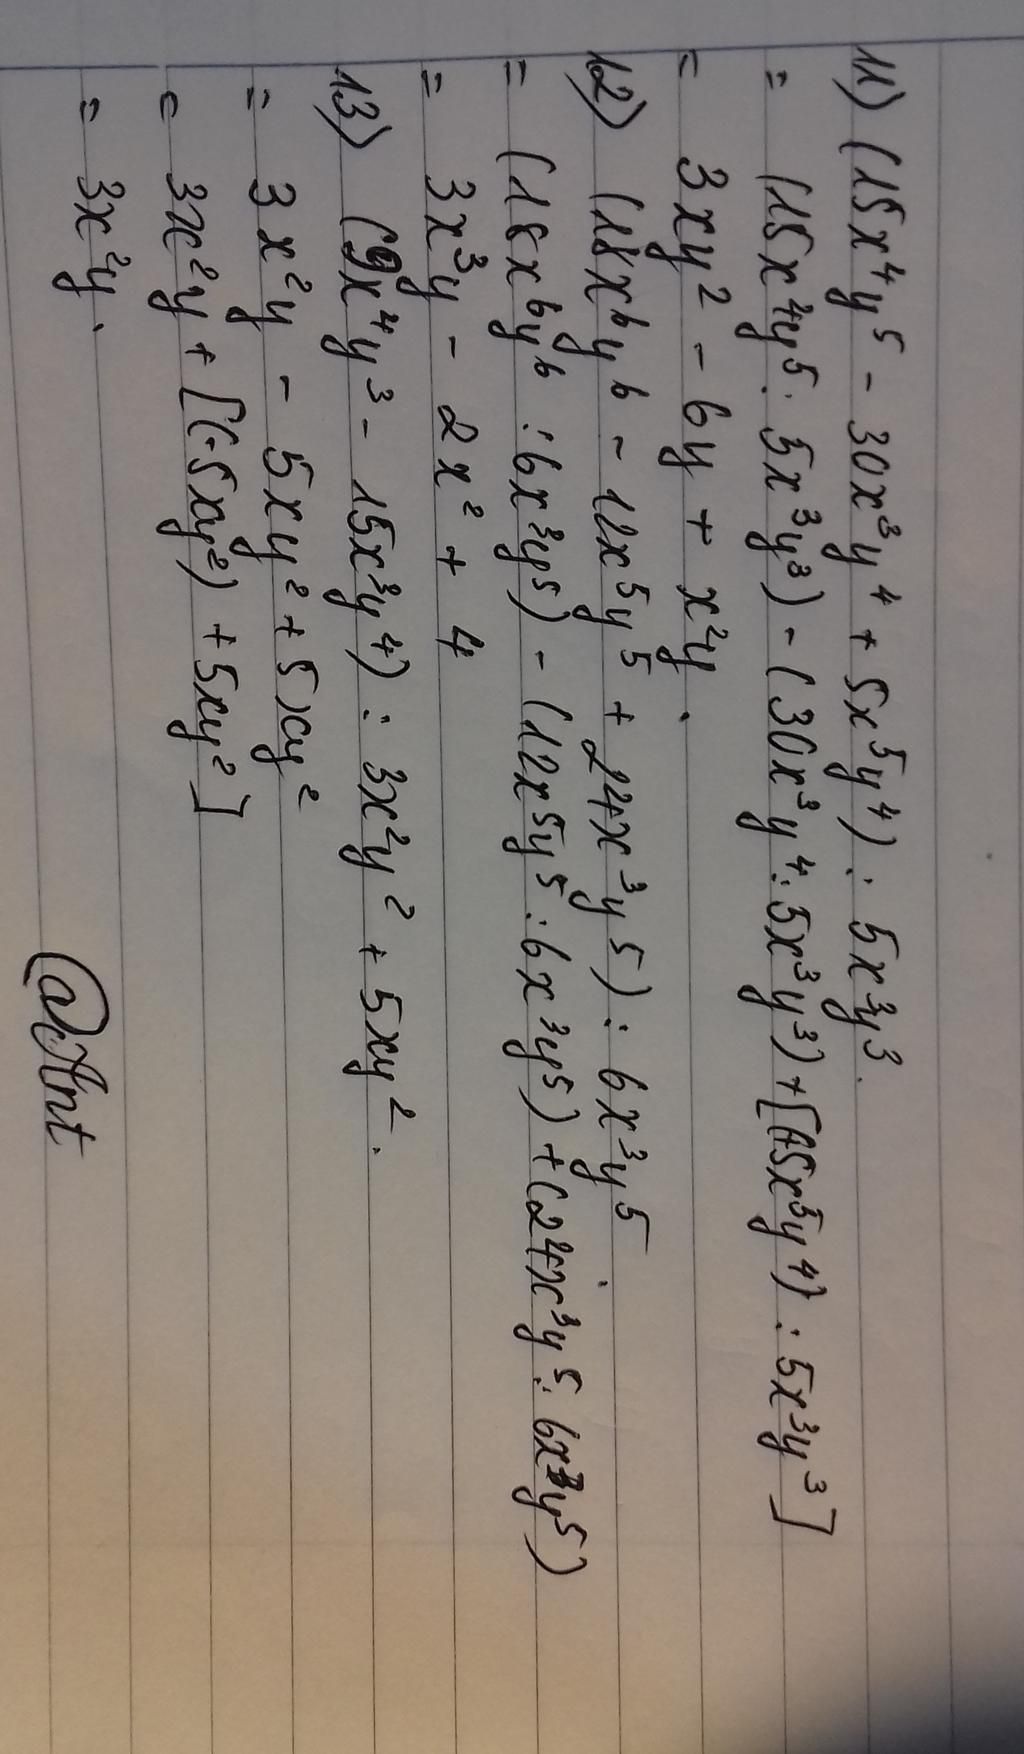 11) (15x⁴y⁵ - 30x³y⁴ + 5x⁵y⁴) : 5x³y³.
= (15x⁴y⁵ : 5x³y³) - (30x³y⁴ : 5x³y³) + [(5x⁵y⁴) : 5x³y³]
= 3xy² - 6y + x²y.
12) (18x⁶y⁶ - 12x⁵y⁵ + 24x³y⁵) : 6x³y⁵.
= (18x⁶y⁶ : 6x³y⁵) - (12x⁵y⁵ : 6x³y⁵) + (24x³y⁵ : 6x³y⁵)
= 3x³y - 2x² + 4
13) (9x⁴y³ - 15x³y⁴) : 3x²y² + 5xy².
= 3x²y - 5xy² + 5xy²
= 3x²y + [(-5xy²) + 5xy²]
= 3x²y.